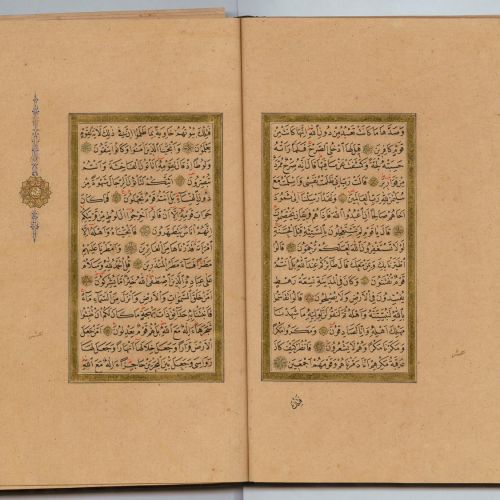 وَصَدَّهَا مَا كَانَتْ تَعْبُدُ مِنْ دُونِ اللَّهِ إِنَّهَا كَانَتْ مِنْ
قَوْمٍ كَافِرِينَ قِيلَ لَهَا ادْخُلِي الصَّرْحَ فَلَمَّا رَأَتْهُ
حَسِبَتْهُ لُجَّةً وَكَشَفَتْ عَنْ سَاقَيْهَا قَالَ إِنَّهُ صَرْحٌ مُمَرَّدٌ
مِنْ قَوَارِيرَ قَالَتْ رَبِّ إِنِّي ظَلَمْتُ نَفْسِي وَأَسْلَمْتُ مَعَ
سُلَيْمَانَ لِلَّهِ رَبِّ الْعَالَمِينَ وَلَقَدْ أَرْسَلْنَا إِلَى ثَمُودَ
أَخَاهُمْ صَالِحًا أَنِ اعْبُدُوا اللَّهَ فَإِذَا هُمْ فَرِيقَانِ يَخْتَصِمُونَ
قَالَ يَا قَوْمِ لِمَ تَسْتَعْجِلُونَ بِالسَّيِّئَةِ قَبْلَ الْحَسَنَةِ
لَوْلَا تَسْتَغْفِرُونَ اللَّهَ لَعَلَّكُمْ تُرْحَمُونَ قَالُوا
اطَّيَّرْنَا بِكَ وَبِمَنْ مَعَكَ قَالَ طَائِرُكُمْ عِنْدَ اللَّهِ بَلْ أَنْتُمْ
قَوْمٌ تُفْتَنُونَ وَكَانَ فِي الْمَدِينَةِ تِسْعَةُ رَهْطٍ
يُفْسِدُونَ فِي الْأَرْضِ وَلَا يُصْلِحُونَ قَالُوا تَقَاسَمُوا
بِاللَّهِ لَنُبَيِّتَنَّهُ وَأَهْلَهُ ثُمَّ لَنَقُولَنَّ لِوَلِيِّهِ مَا شَهِدْنَا
مَهْلِكَ أَهْلِهِ وَإِنَّا لَصَادِقُونَ وَمَكَرُوا مَكْرًا
وَمَكَرْنَا مَكْرًا وَهُمْ لَا يَشْعُرُونَ فَانْظُرْ كَيْفَ كَانَ
عَاقِبَةُ مَكْرِهِمْ أَنَّا دَمَّرْنَاهُمْ وَقَوْمَهُمْ أَجْمَعِينَ
فَتِلْكَ
فَتِلْكَ بُيُوتُهُمْ خَاوِيَةً بِمَا ظَلَمُوا إِنَّ فِي ذَلِكَ لَآيَةً لِقَوْمٍ
يَعْلَمُونَ وَأَنْجَيْنَا الَّذِينَ آمَنُوا وَكَانُوا يَتَّقُونَ
وَلُوطًا إِذْ قَالَ لِقَوْمِهِ أَتَأْتُونَ الْفَاحِشَةَ وَأَنْتُمْ
تُبْصِرُونَ أَئِنَّكُمْ لَتَأْتُونَ الرِّجَالَ شَهْوَةً مِنْ
دُونِ النِّسَاءِ بَلْ أَنْتُمْ قَوْمٌ تَجْهَلُونَ فَمَا كَانَ
جَوَابَ قَوْمِهِ إِلَّا أَنْ قَالُوا أَخْرِجُوا آلَ لُوطٍ مِنْ قَرْيَتِكُمْ
إِنَّهُمْ أُنَاسٌ يَتَطَهَّرُونَ فَأَنْجَيْنَاهُ وَأَهْلَهُ إِلَّا
امْرَأَتَهُ قَدَّرْنَاهَا مِنَ الْغَابِرِينَ وَأَمْطَرْنَا عَلَيْهِمْ
مَطَرًا فَسَاءَ مَطَرُ الْمُنْذَرِينَ قُلِ الْحَمْدُ لِلَّهِ وَسَلَامٌ
عَلَى عِبَادِهِ الَّذِينَ اصْطَفَى آللَّهُ خَيْرٌ أَمَّا يُشْرِكُونَ
أَمَّنْ خَلَقَ السَّمَوَاتِ وَالْأَرْضَ وَأَنْزَلَ لَكُمْ مِنَ السَّمَاءِ مَاءً
فَأَنْبَتْنَا بِهِ حَدَائِقَ ذَاتَ بَهْجَةٍ مَا كَانَ لَكُمْ أَنْ تُنْبِتُوا
شَجَرَهَا أَإِلَهٌ مَعَ اللَّهِ بَلْ هُمْ قَوْمٌ يَعْدِلُونَ أَمَّنْ جَعَلَ
الْأَرْضَ قَرَارًا وَجَعَلَ خِلَالَهَا أَنْهَارًا وَجَعَلَ لَهَا
رَوَاسِيَ وَجَعَلَ بَيْنَ الْبَحْرَيْنِ حَاجِزًا أَإِلَهٌ مَعَ اللَّهِ